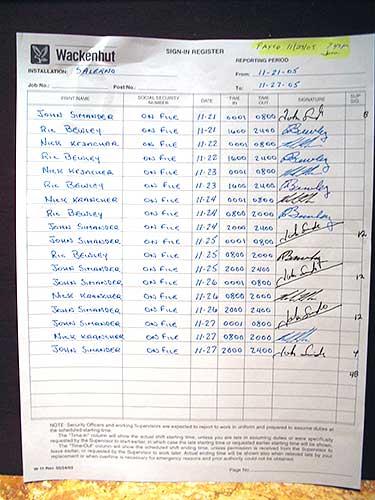 Wackenhut
SIGN-IN REGISTER
REPORTING PERIOD
INSTALLATION: SALERNO
From: 11-21-05
Job No.: Post No.: To: 11-27-05
PRINT NAME SOCIAL SECURITY NUMBER DATE TIME IN TIME OUT SIGNATURE SUP SIG.
JOHN SIMANDER ON FILE 11-21 0001 0800 8
RIC BEWLEY ON FILE 11-21 1600 2400
NICK KRANCHER ON FILE 11-22 0001 0800
RIC BEWLEY ON FILE 11-22 1600 2400
NICK KRANCHER ON FILE 11-23 0001 0800
RIC BEWLEY ON FILE 11-23 1600 2400
NICK KRANCHER ON FILE 11-24 0001 0800
RIC BEWLEY ON FILE 11-24 0800 2000
JOHN SIMANDER ON FILE 11-24 2000 2400
JOHN SIMANDER ON FILE 11-25 0001 0800 12
RIC BEWLEY ON FILE 11-25 0800 2000
JOHN SIMANDER ON FILE 11-25 2000 2400
JOHN SIMANDER ON FILE 11-26 0001 0800 12
NICK KRANCHER ON FILE 11-26 0800 2000
JOHN SIMANDER ON FILE 11-26 2000 2400 12
JOHN SIMANDER ON FILE 11-27 0001 0800
NICK KRANCHER ON FILE 11-27 0800 2000
JOHN SIMANDER ON FILE 11-27 2000 2400 4
48
NOTE: Security Officers and working Supervisors are expected to report to work in uniform and prepared to assume duties at the scheduled starting time.
The "Time-In" column will show the actual shift starting time, unless you are late in assuming duties or were specifically requested by the Supervisor to start earlier, in which case the late starting time or stated earlier starting time will be shown.
The "Time-Out" column will show the scheduled shift ending time, unless permission is received from the Supervisor to leave earlier, or requested by the Supervisor to work later. Actual ending time will be shown also when relieved late by your replacement or when overtime is necessary for emergency reasons and prior authority could not be obtained.
Page No.